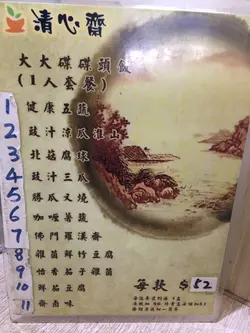 清心齋
大大碟碟頭飯
(1人套餐)
1 健康五蔬
2 豉汁涼瓜淮山
3 北菇腐球
4 豉汁三瓜
5 勝瓜叉燒
6 咖喱薯蔬
7 佛門羅漢齋
8 雜菌鮮竹豆腐
9 怡香茄子雜菌
10 鮮茄豆腐
11 齋鹵味
每款 $52